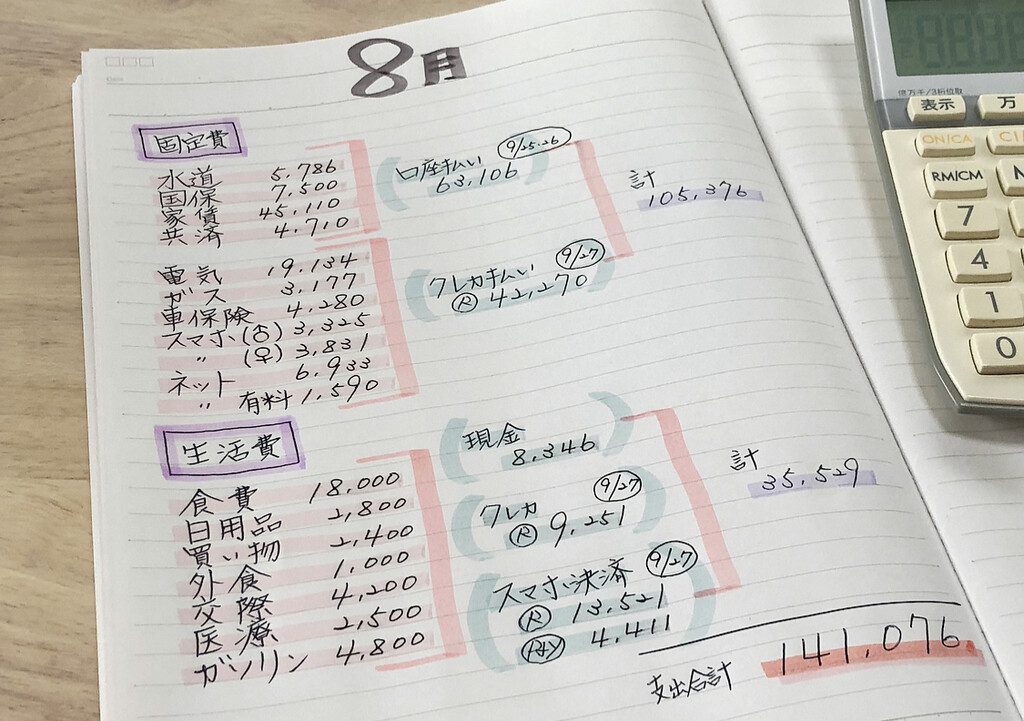 8月
固定費
水道 5.786
国保 7.500
家賃 45,110
共済 4.710
口座払い 9/25.26
63,106
計
105,376
電気 19.134
ガス 3.177
車保険 4.280
スマホ(♂) 3,325
〃 (♀) 3,831
ネット 6.933
〃 有料 1,590
クレカ払い 9/27
R 42,270
生活費
食費 18,000
日用品 2,800
買い物 2,400
外食 1,000
交際 4,200
医療 2,500
ガソリン 4,800
現金
8,346
クレカ 9/27
R 9,251
スマホ決済 9/27
R 13,521
4,411
計
35,529
支出合計 141,076
億万千/3桁位取
表示 万
ON/CA
RM/CM
7
4
1
0